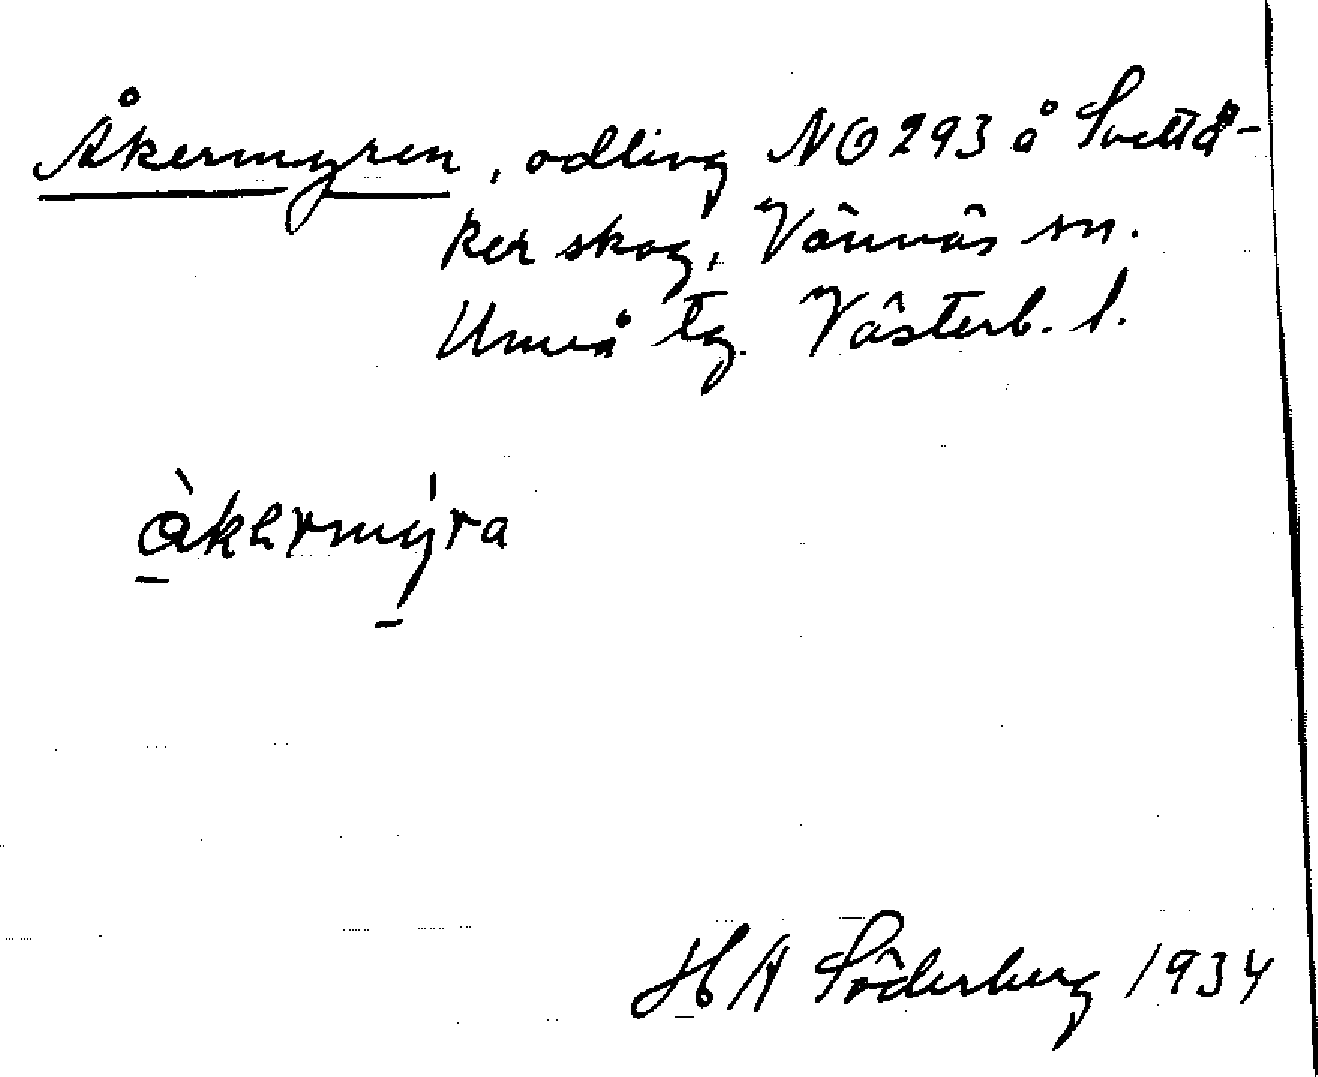 Åkermyren, odling NO 293 å
ker skog, Vännäs sn.
Umeå tg. Västerb. l.
àkermýra
H A Söderberg 1934